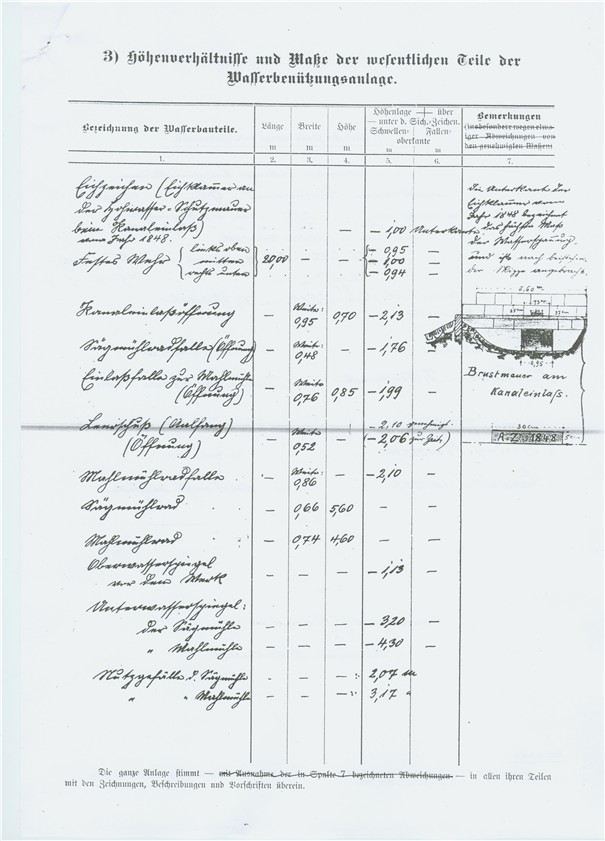 3) Höhenverhältnisse und Maße der wesentlichen Teile der
Wasserbenützungsanlage.
Bezeichnung der Wasserbauteile. Länge Breite Höhe Höhenlage + über
— unter d. Sich.-Zeichen.
Schwellen- Fallen-
oberkante
Bemerkungen
(insbesondere wegen etwa-
iger Abweichungen von
den genehmigten Maßen)
m m m m m
1. 2. 3. 4. 5. 6. 7.
Eichzeichen (Eichklammer an
der Hochwasser-Schutzmauer
beim Kanaleinlaß) — — − 1,00 Unterkante
vom Jahr 1848.
Festes Wehr links oben 20,00 — — − 0,95 —
mitten − 1,00 —
rechts unten − 0,94 —
Die Unterkante der
Eichklammer vom
Jahr 1848 bezeichnet
das höchste Maß
der Wasserspannung
und ist nach
der Skizze angebracht.
2,60 m.
Kanaleinlaßöffnung — Weite: 0,95 0,70 − 2,13 —
Sägmühlradfalle (Öffnung) — Weite: 0,48 — − 1,76 —
0,95
Brustmauer am
Kanaleinlass.
Einlaßfalle zur Mahlmühle
(Öffnung) — Weite 0,76 0,85 − 1,99 —
Leerschuß (Aalfang)
(Öffnung) — Weite 0,52 — − 2,10 genehmigt.
(− 2,06 zur Zeit) —
30 cm
A.Z. 1848
Mahlmühlradfalle — Weite: 0,86 — − 2,10 —
Sägmühlrad — 0,66 5,60 — —
Mahlmühlrad — 0,74 4,60 — —
Oberwasserspiegel
vor dem Werk — — — − 1,13 —
Unterwasserspiegel:
der Sägmühle — — — − 3,20 —
" Mahlmühle — — — − 4,30 —
Nutzgefälle d. Sägmühle — — —: 2,07 m
" " Mahlmühle — — —: 3,17 "
Die ganze Anlage stimmt — mit Ausnahme der in Spalte 7 bezeichneten Abweichungen — in allen ihren Teilen
mit den Zeichnungen, Beschreibungen und Vorschriften überein.